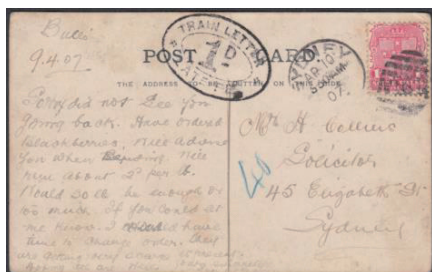 Bulli
9.4.07
POST CARD.
TRAIN LETTER
1D
LATE FEE
SYDNEY
AP 10
07
THE ADDRESS TO BE WRITTEN ON THIS SIDE
Sorry did not see you
going back. Have ordered
Blackberries, Will advise
you when sending. Will
run about 2d per lb.
Would 30 lb be enough or
too much. If you could let
me know. I should have
time to change order. They
are getting very scarce
Mr H Collins
Solicitor
45 Elizabeth St
Sydney
40